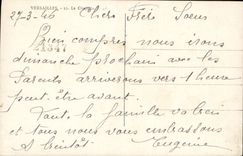 VERSAILLES.
27-3-46 Chers Frère Soeur
Bien compris nous irons
11347
dimanche prochain avec les
Parents arriverons vers 1 heure
peut-être avant.
Toute la famille va bien
et tous nous vous embrassons
A bientôt Eugénie